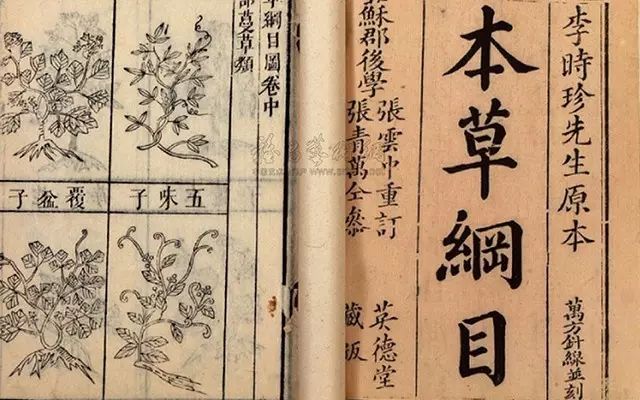 李時珍先生原本
萬方針線並刻
本草綱目
蘇郡後學
張雲中重訂
張青萬仝參
英德堂
藏版
草綱目圖卷中
部蔓草類
五味子
覆盆子